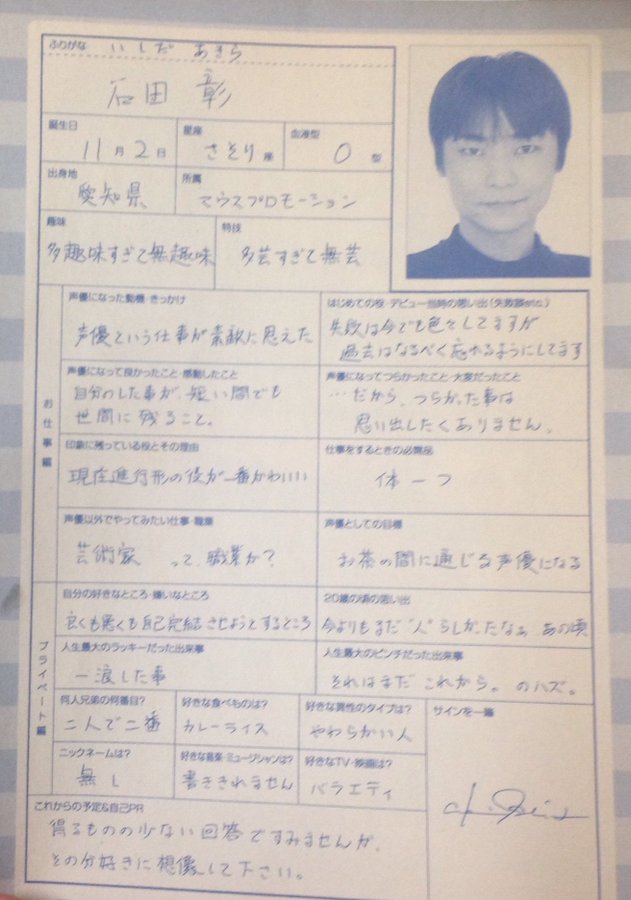 ふりがな いしだ あきら
石田 彰
誕生日 11月2日
星座 さそり座
血液型 O型
出身地 愛知県
所属 マウスプロモーション
趣味 多趣味すぎて無趣味
特技 多芸すぎて無芸
お仕事編
声優になった動機・きっかけ
声優という仕事が素敵に思えた
はじめての役・デビュー当時の思い出(失敗談etc.)
失敗は今でも色々してますが
過去はなるべく忘れるようにしてます
声優になって良かったこと・感動したこと
自分のした事が、短い間でも
世間に残ること。
声優になってつらかったこと・大変だったこと
…だから、つらかった事は
思い出したくありません。
印象に残っている役とその理由
現在進行形の役が一番かわいい
仕事をするときの必需品
体一つ
声優以外でやってみたい仕事・職業
芸術家 って、職業か?
声優としての目標
お茶の間に通じる声優になる
プライベート編
自分の好きなところ・嫌いなところ
良くも悪くも自己完結させようとするところ
20歳の頃の思い出
今よりもまだ"人"らしかったなぁ あの頃
人生最大のラッキーだった出来事
一浪した事
人生最大のピンチだった出来事
それはまだこれから。のハズ。
何人兄弟の何番目?
二人で二番
好きな食べものは?
カレーライス
好きな異性のタイプは?
やわらかい人
サインを一筆
ニックネームは?
無し
好きな音楽・ミュージシャンは?
書ききれません
好きなTV・映画は?
バラエティ
これからの予定&自己PR
得るものの少ない回答ですみませんが、
その分好きに想像して下さい。